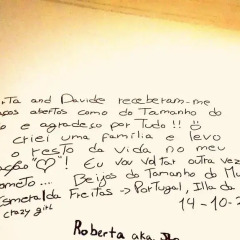 and Davide receberam-me
abertos como do Tamanho do
e agradeço por Tudo!!
criei uma família e levo
o resto da vida no meu
"♡"! Eu vou voltar outra vez
... Beijos do Tamanho do
Esmeralda Freitas → Portugal, Ilha da
crazy girl 14-10-2
Roberta aka